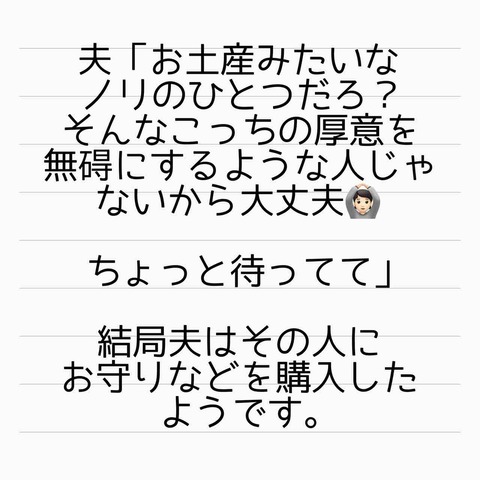 夫「お土産みたいな
ノリのひとつだろ？
そんなこっちの厚意を
無碍にするような人じゃ
ないから大丈夫🙆🏻‍♂️
ちょっと待ってて」
結局夫はその人に
お守りなどを購入した
ようです。